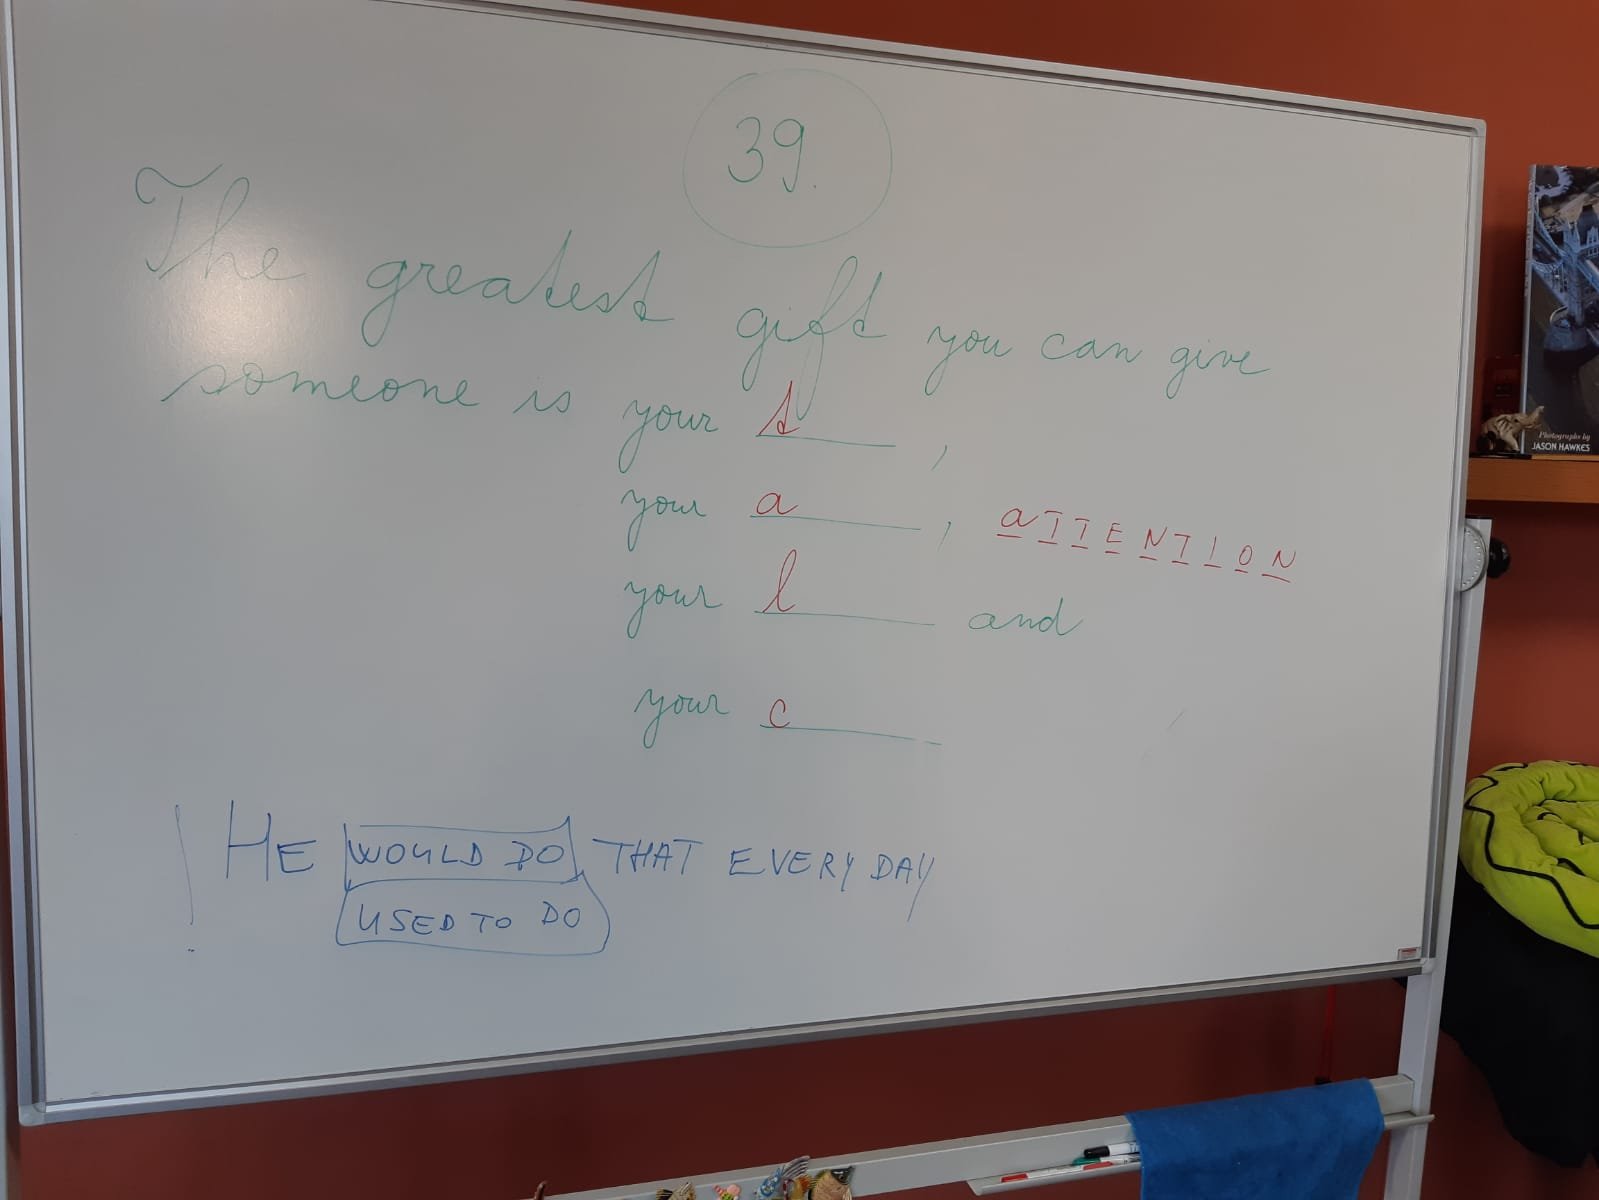 39.
The greatest gift you can give
someone is your t____,
your a____, aTTENTION
your l____ and
your c____
! HE WOULD DO THAT EVERY DAY
USED TO DO
Photographs by
JASON HAWKES